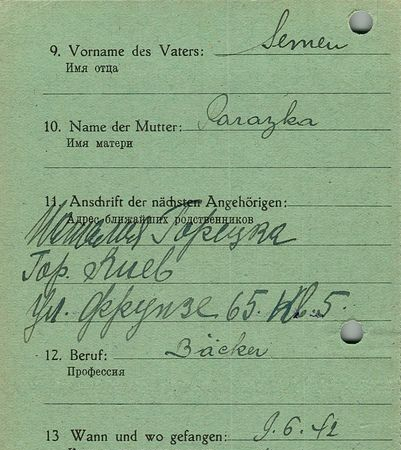 9. Vorname des Vaters: Semen
Имя отца
10. Name der Mutter: Parazka
Имя матери
11. Anschrift der nächsten Angehörigen:
Адрес ближайших родственников
Наталия Горецка
Гор. Киев
Ул. Фрунзе 65. Кв. 5.
12. Beruf: Bäcker
Профессия
13 Wann und wo gefangen: 9.6.42